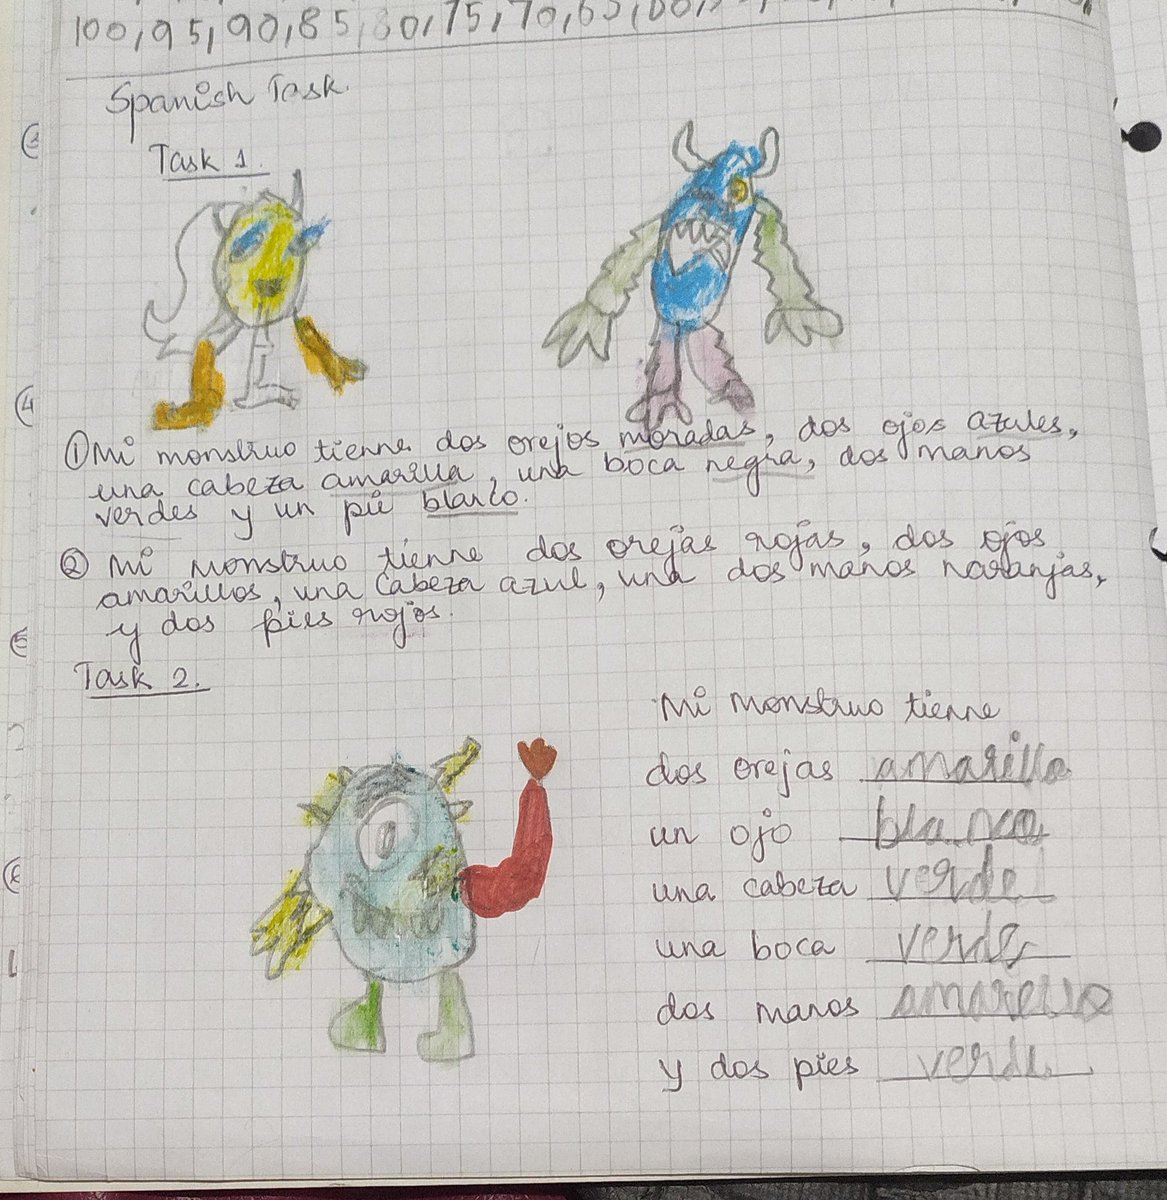 100, 95, 90, 85, 80, 75, 70, 65, 60,
Spanish Task.
Task 1.
① Mi monstruo tienne dos orejos moradas, dos ojos azules,
una cabeza amarilla, una boca negra, dos manos
verdes y un pie blanco.
② Mi monstruo tienne dos orejas rojas, dos ojos
amarillos, una cabeza azul, una dos manos naranjas,
y dos pies rojos.
Task 2.
Mi monstruo tienne
dos orejas amarillo
un ojo blanco
una cabeza verde
una boca verde
dos manos amarello
y dos pies verde